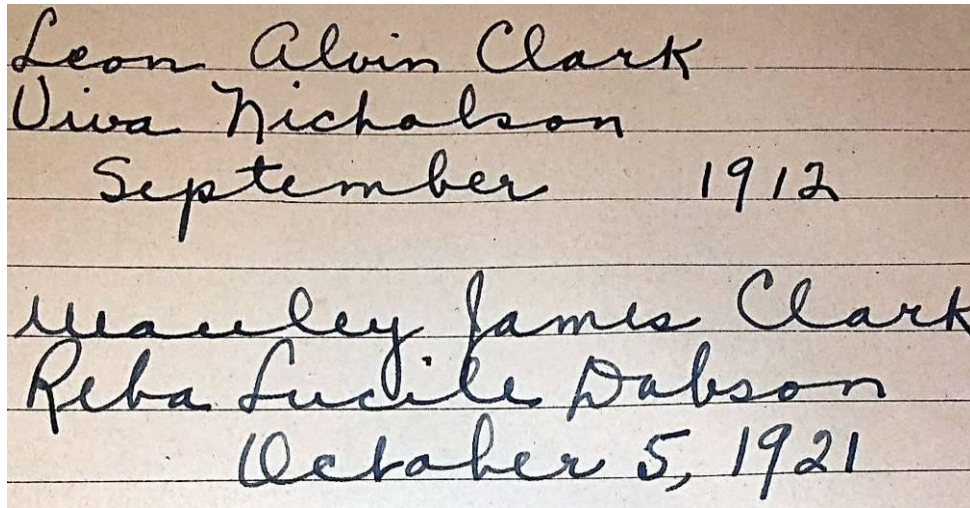 Leon Alvin Clark
Viva Nicholson
September 1912
Manley James Clark
Reba Lucile Dobson
October 5, 1921